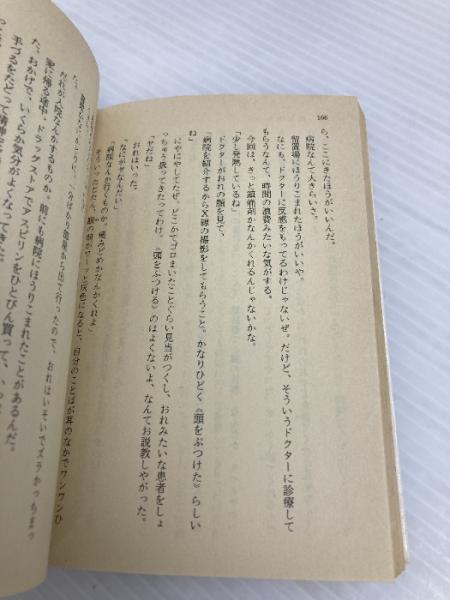 166
ら、ここにきたほうがいいんだ。
病院なんて大きらいさ。
留置場にほうりこまれたほうがいいや。
なにも、ドクターに反感をもってるわけじゃないぜ。だけど、そういうドクターに診療して
もらうなんて、時間の浪費みたいな気がする。
今回は、きっと鎮痛剤かなんかくれるんじゃないかな。
「少し発熱しているね」
ドクターがおれの顔を見て、
「病院を紹介するからX線の撮影をしてもらうこと。かなりひどく《頭をぶつけた》らしい
ね」
にやにやしてたぜ。どこかでゴロまいたことぐらい見当がつくし、おれみたいな患者をしょ
っちゅう扱ってきたってわけ。《頭をぶつける》のはよくないよ、なんてお説教しやがった。
「ヤだね」
おれはいった。
「なにがヤなんだい」
「病院なんか行くものか。痛みどめかなんかくれよ」
そういったとたん、眼の前がワーッと灰色になると、自分のことばが耳のなかでワンワンひ
た。
部屋から出て行ったので、おれはいそいでズラかっちまっ
た。
だれが入院なんかするものか。前にも病院にほうりこまれたことがあるんだ。
家に帰る途中、ドラッグストアでアスピリンをひとびん買って、
た。おかげで、いくらか気分がよくなってきた。
手づるをたどって精神